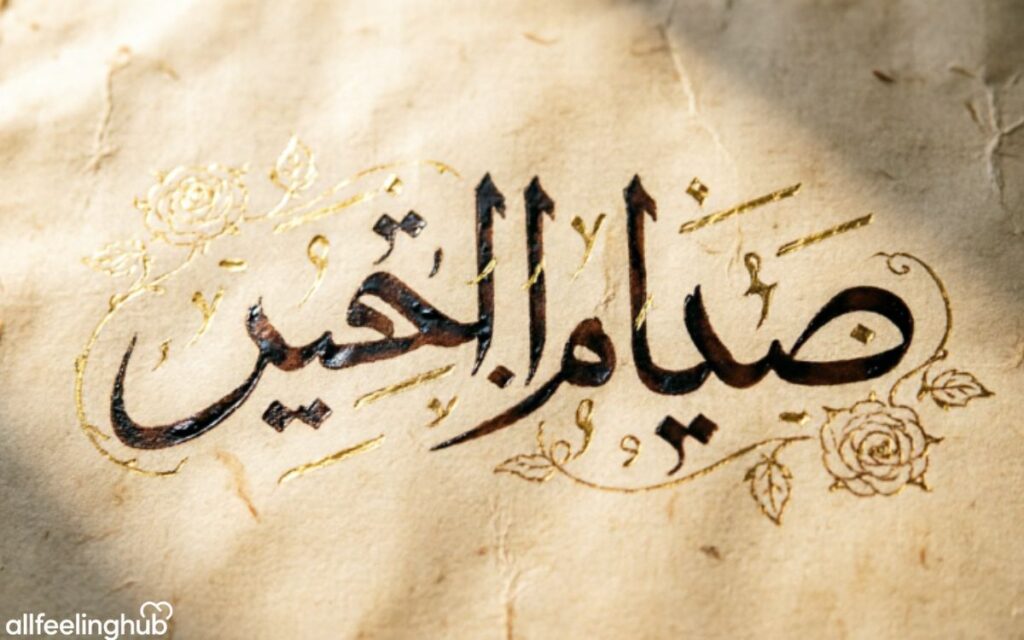 صيام الخير
allfeelinghub